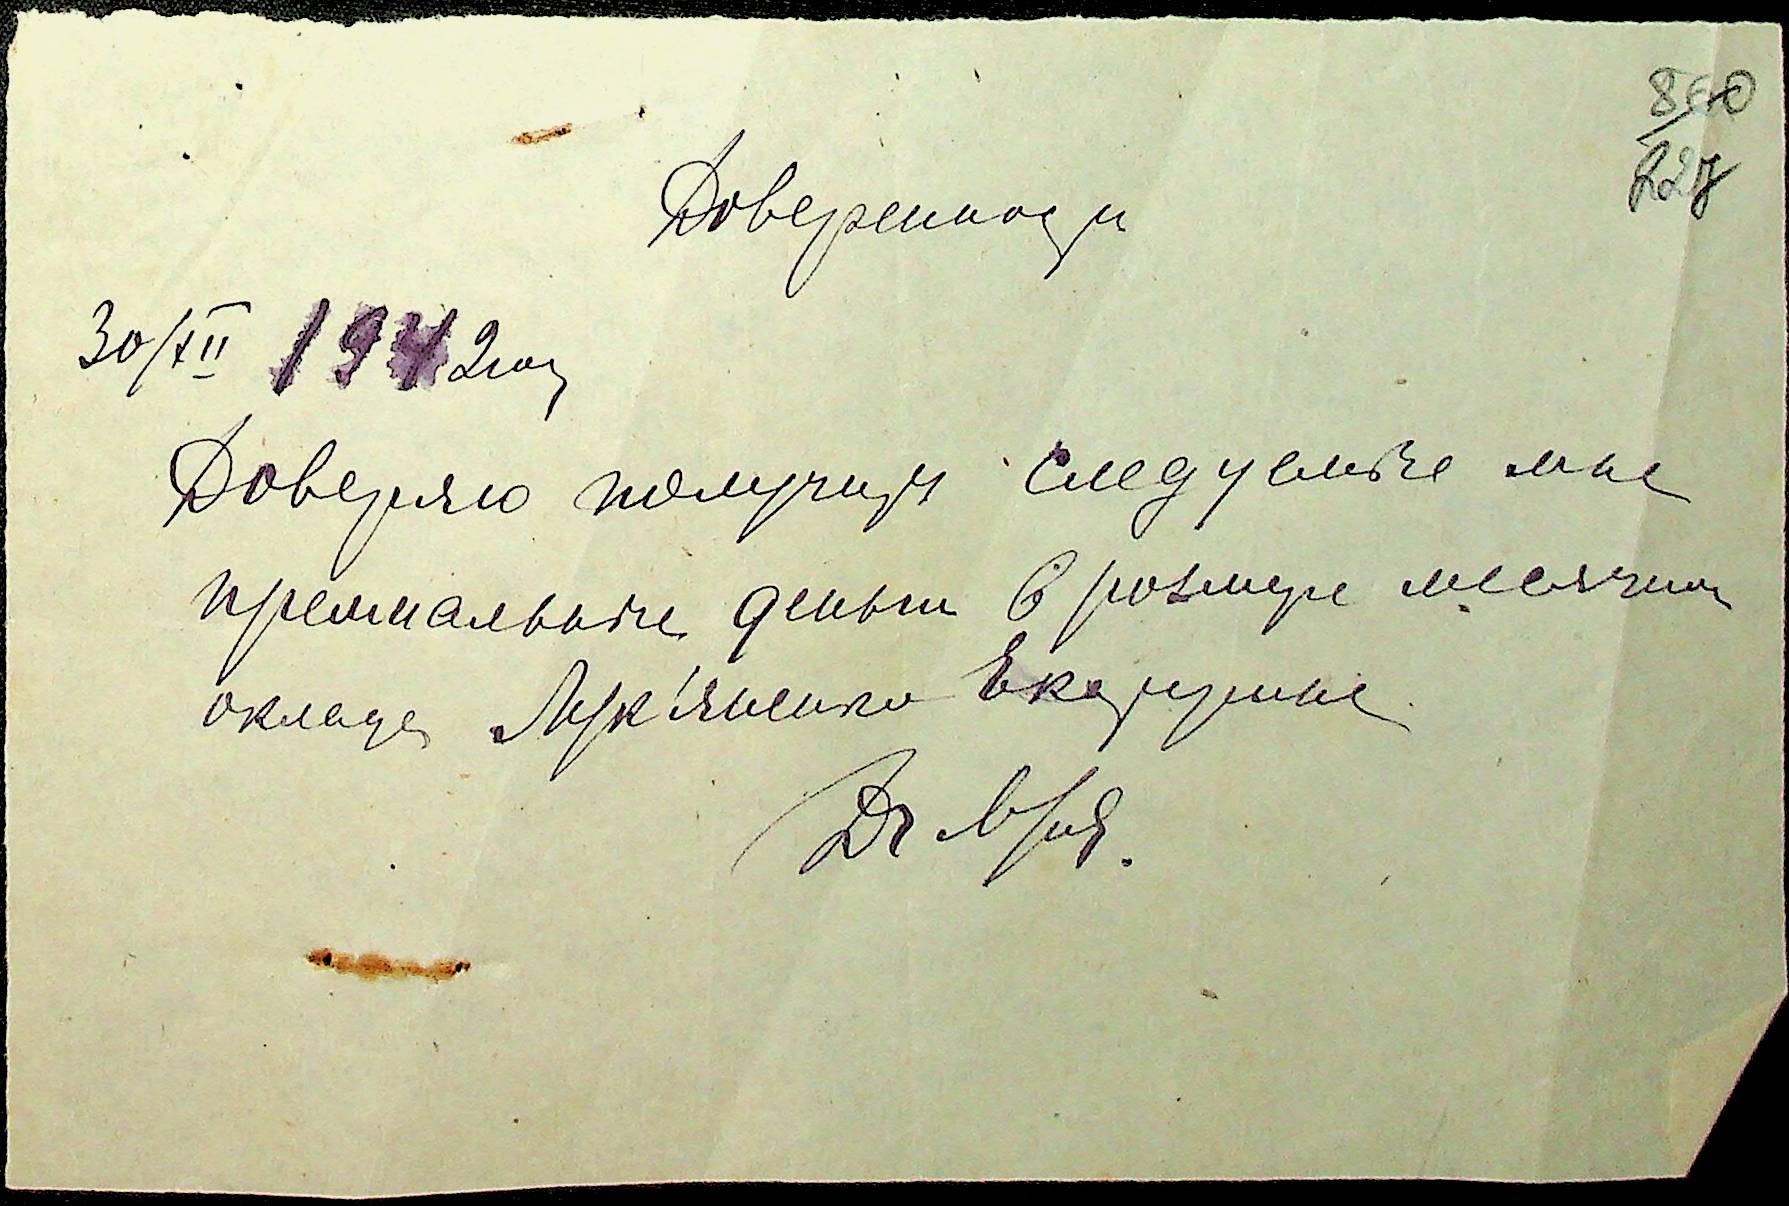 860
227
Доверенности
30/XII 1942 год
Доверяю получить следуемые мне
премиальные деньги в розмере месячного
оклада Лук'яненко Екатерине
Dr